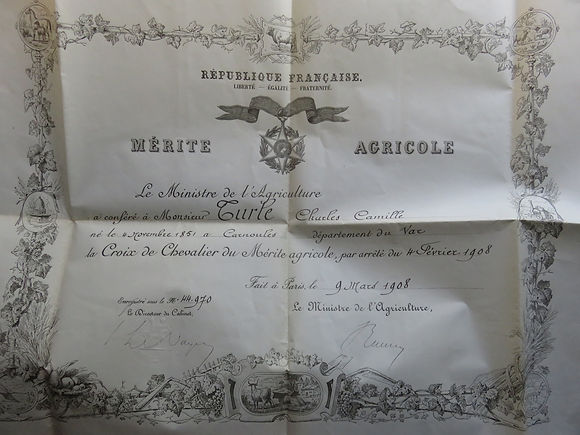 RÉPUBLIQUE FRANÇAISE.
LIBERTÉ — ÉGALITÉ — FRATERNITÉ.
MÉRITE AGRICOLE
Le Ministre de l'Agriculture
a conféré à Monsieur Turle Charles Camille
né le 4 Novembre 1851 a Carnoules département du Var
la Croix de Chevalier du Mérite agricole, par arrêté du 4 Février 1908
Fait à Paris, le 9 Mars 1908
Enregistré sous le No 44.970
Le Directeur du Cabinet, Le Ministre de l'Agriculture,